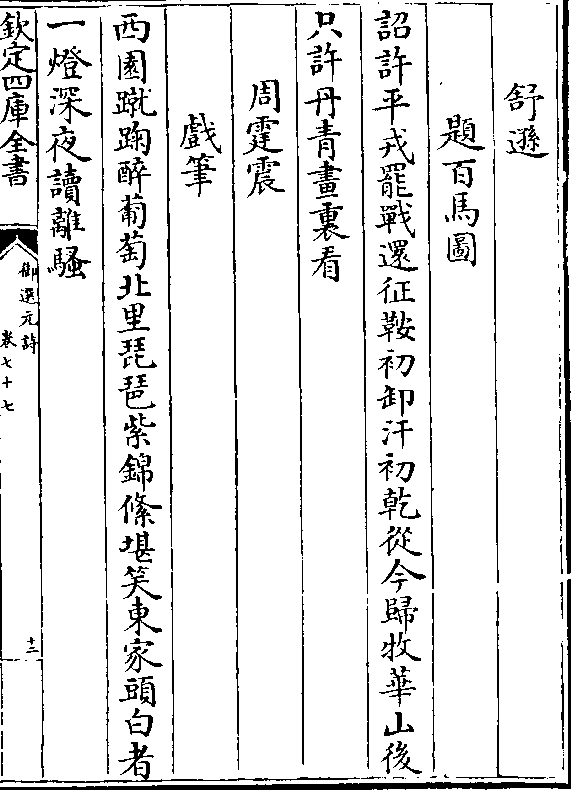 舒遜
題百馬圖
詔許平戎罷戰還征鞍初卸汗初乾從今歸牧華山後
只許丹青畫裏看
周霆震
戲筆
西園蹴踘醉葡萄北里琵琶紫錦絛堪笑東家頭白者
一燈深夜讀離騷
欽定四庫全書
御選元詩
卷七十七
十二